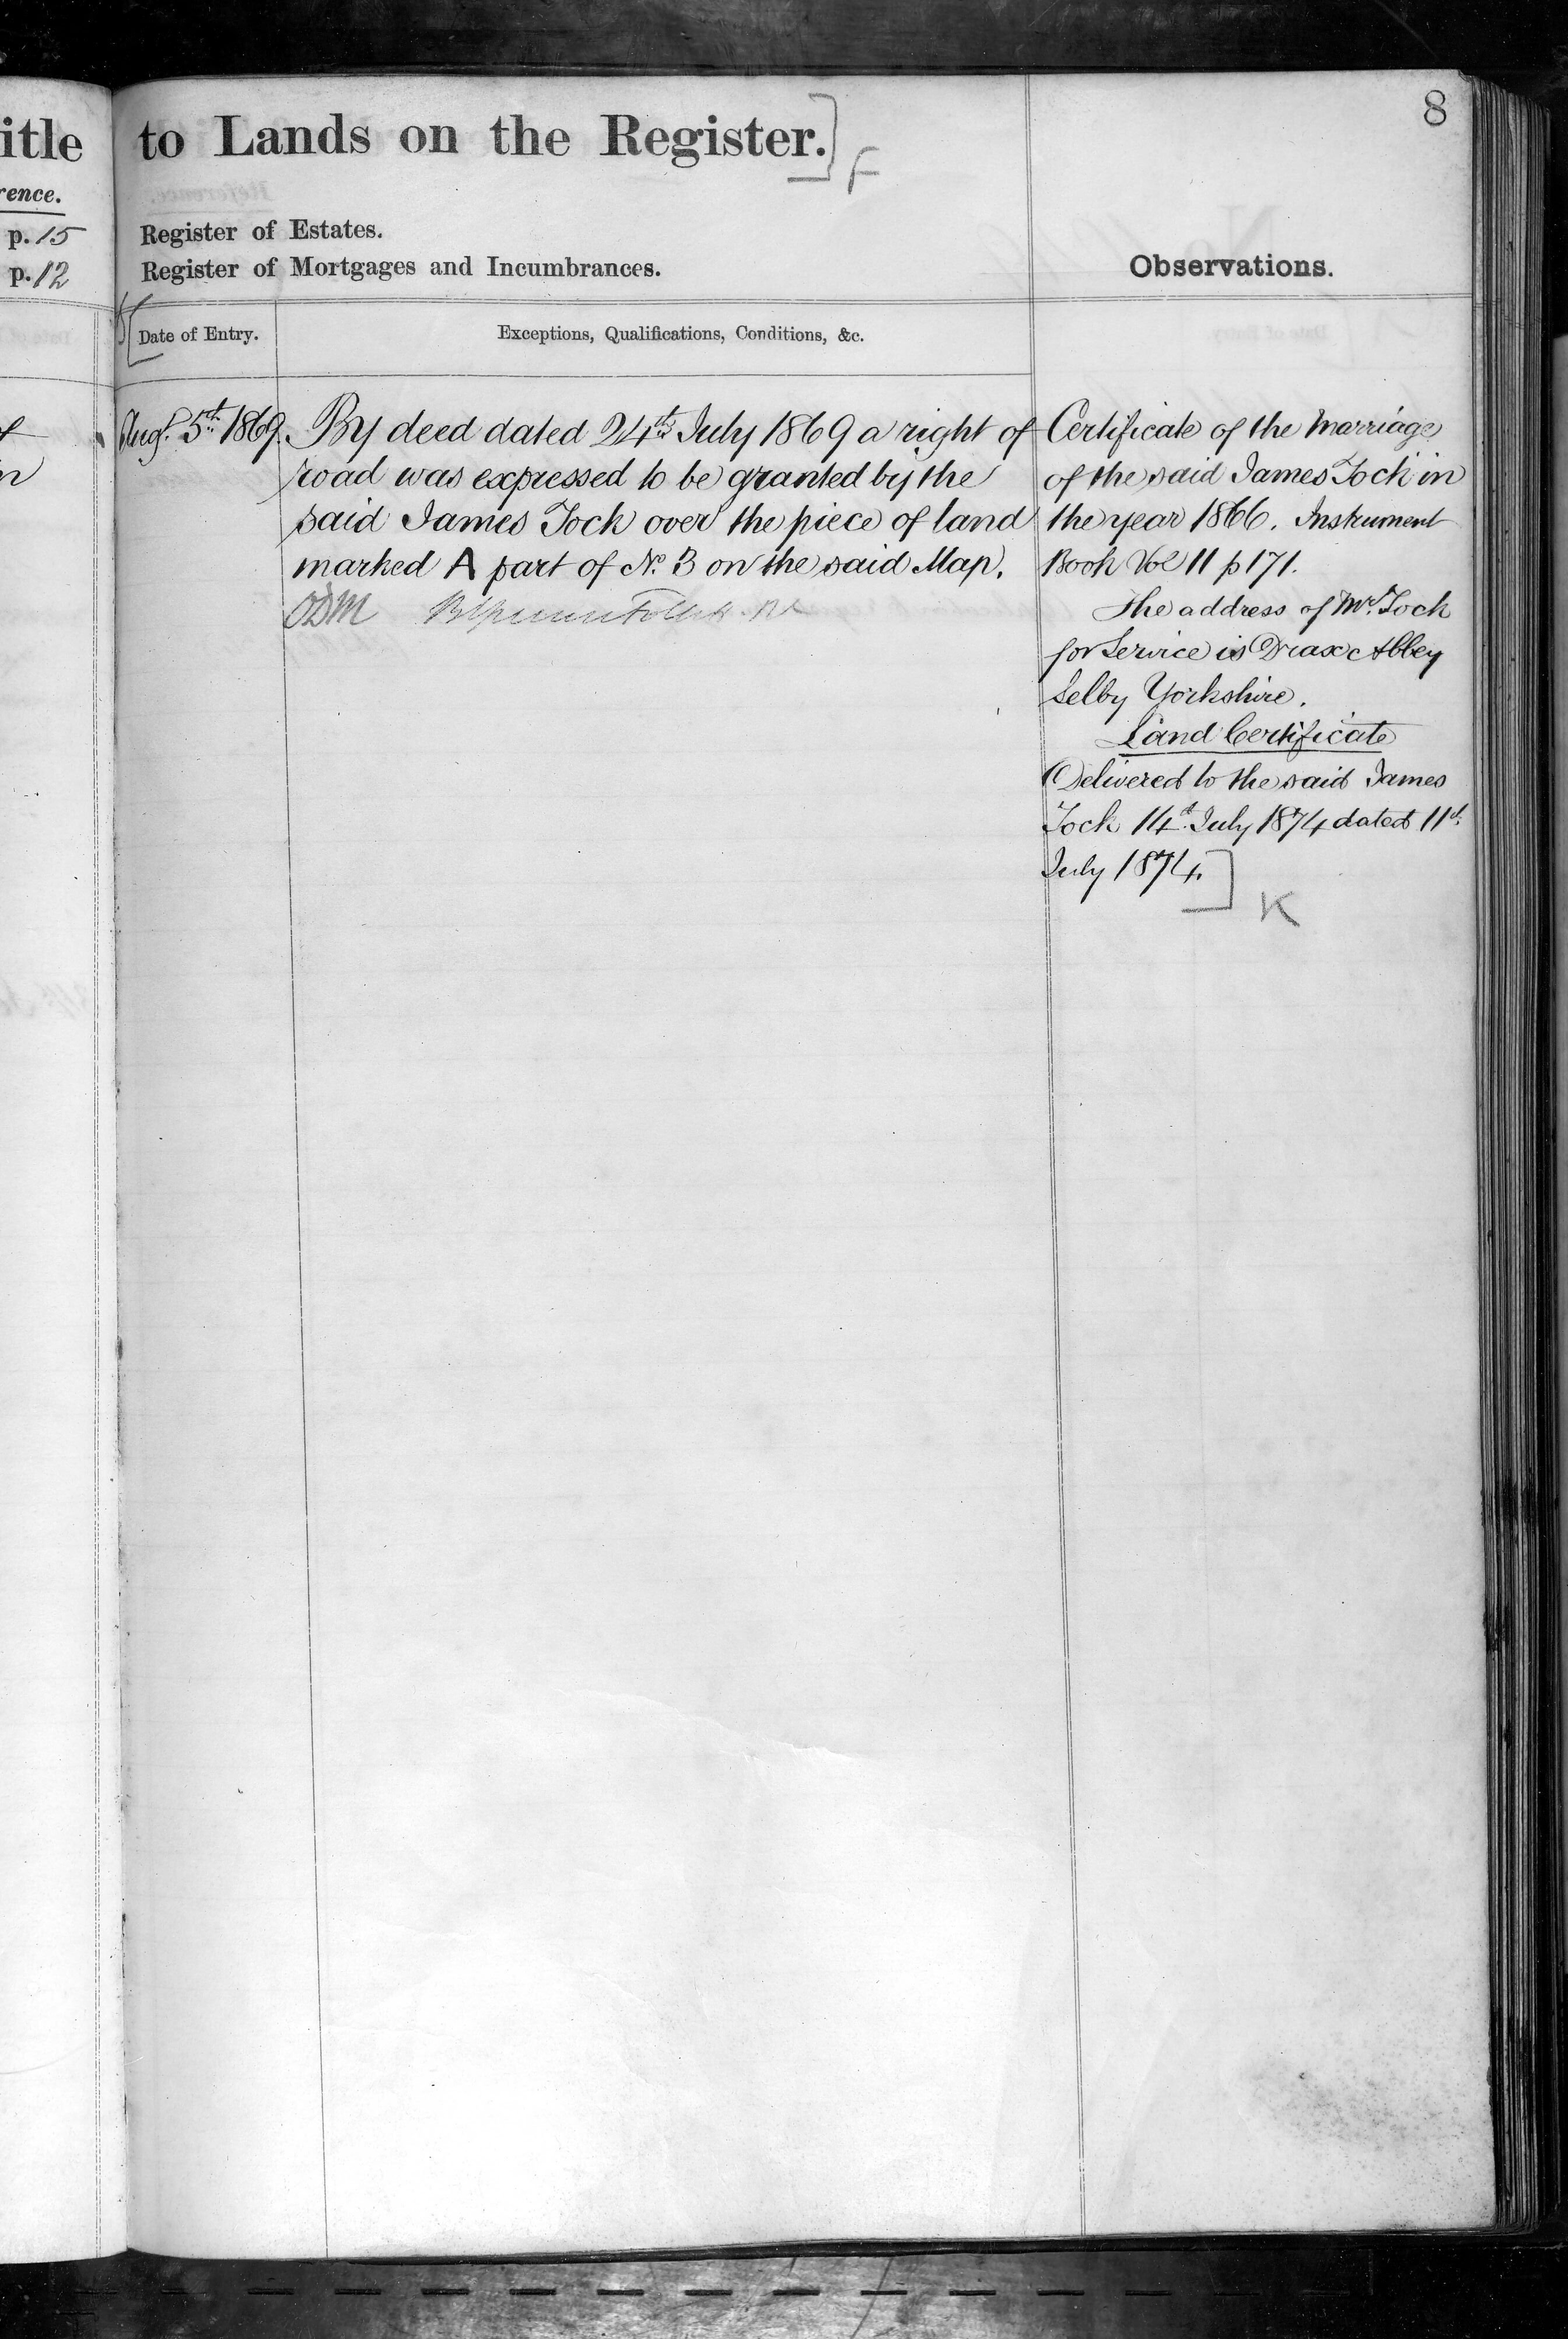 8
itle to Lands on the Register.] F
rence.
p. 15 Register of Estates.
p. 12 Register of Mortgages and Incumbrances.
Observations.
[Date of Entry.
Exceptions, Qualifications, Conditions, &c.
Augt. 5th 1869.
By deed dated 24th July 1869 a right of
road was expressed to be granted by the
said James Tock over the piece of land
marked A part of No. 3 on the said Map.
Certificate of the Marriage
of the said James Tock in
the year 1866. Instrument
Book Vol 11 p 171.
The address of Mr. Tock
for Service is Drax Abbey
Selby Yorkshire.
Land Certificate
Delivered to the said James
Tock 14th July 1874 dated 11th
July 1874.] K